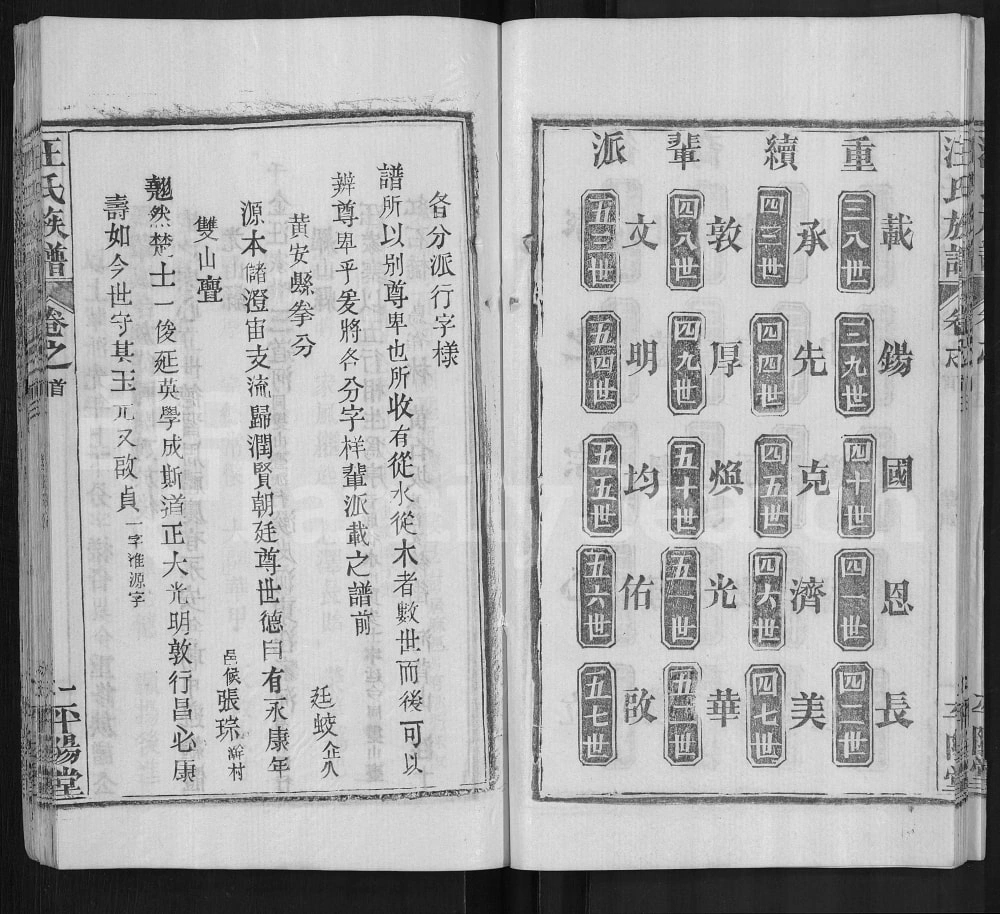 重續輩派
三八世 載
三九世 錫
四十世 國
四一世 恩
四二世 長
四三世 承
四四世 先
四五世 克
四六世 濟
四七世 美
四八世 敦
四九世 厚
五十世 煥
五一世 光
五二世 華
五三世 文
五四世 明
五五世 均
五六世 佑
五七世 啟
各分派行字樣
譜所以别尊卑也所收有從水從木者數世而後可以
辨尊卑乎爰將各分字样輩派載之譜前
黄安縣拳分
廷蛟
源本諸澄宙支流歸潤賢朝廷尊世德曰有永康年
雙山亹
邑候張琮
翹然楚土一俊延英學成斯道正大光明敦行昌必康
壽如今世守其玉元又啟貞一字淮源字
汪氏族譜
卷之首
平陽堂